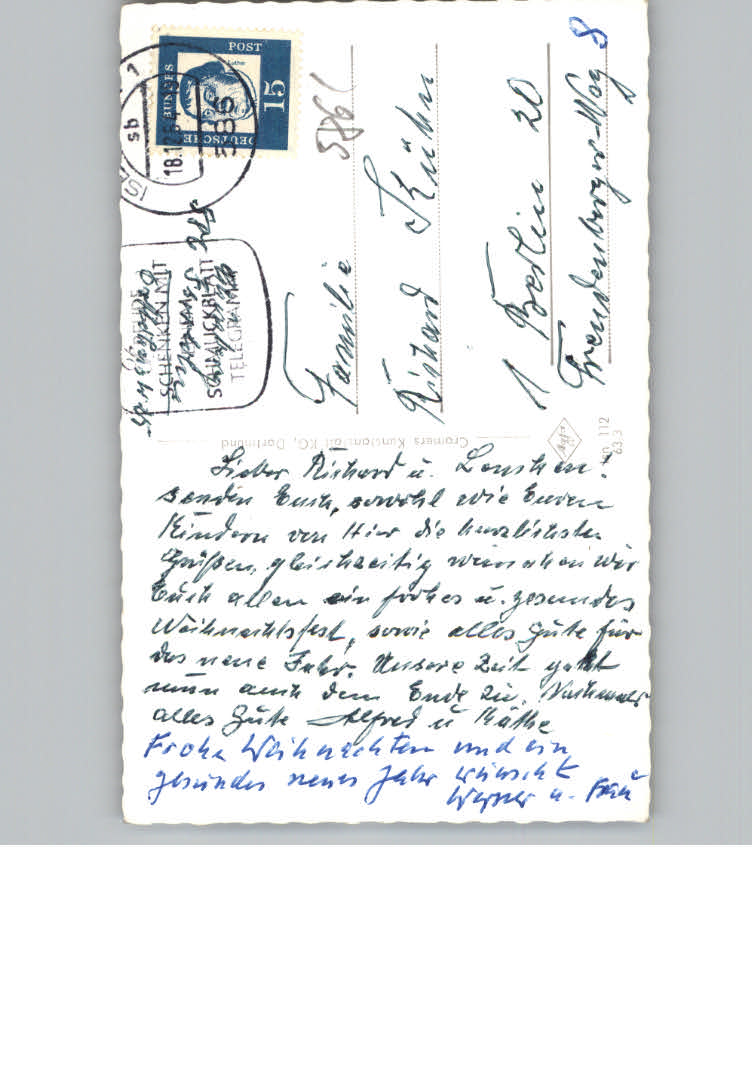 Lieber Richard u. Lenchen!
senden Euch, sowohl wie Euren
Kindern von Hier die herzlichsten
Grüßen, gleichzeitig wünschen wir
Euch allen ein frohes u. gesundes
Weihnachtsfest, sowie alles Gute für
das neue Jahr. Unsere Zeit geht
nun auch dem Ende zu. Nochmals
alles Gute Alfred u Käthe
Frohe Weihnachten und ein
gesundes neues Jahr wünscht
Werner u. Frau
Familie
Richard Kühn
1 Berlin 20
Freudenberger-Weg 8
DEUTSCHE BUNDESPOST
15
Luther
586
sb
18.12.64
SCHENKEN MIT
SCHMUCKBLATT
TELEGRAMM
586
Cramers Kunstanstalt KG, Dortmund
112
63 3